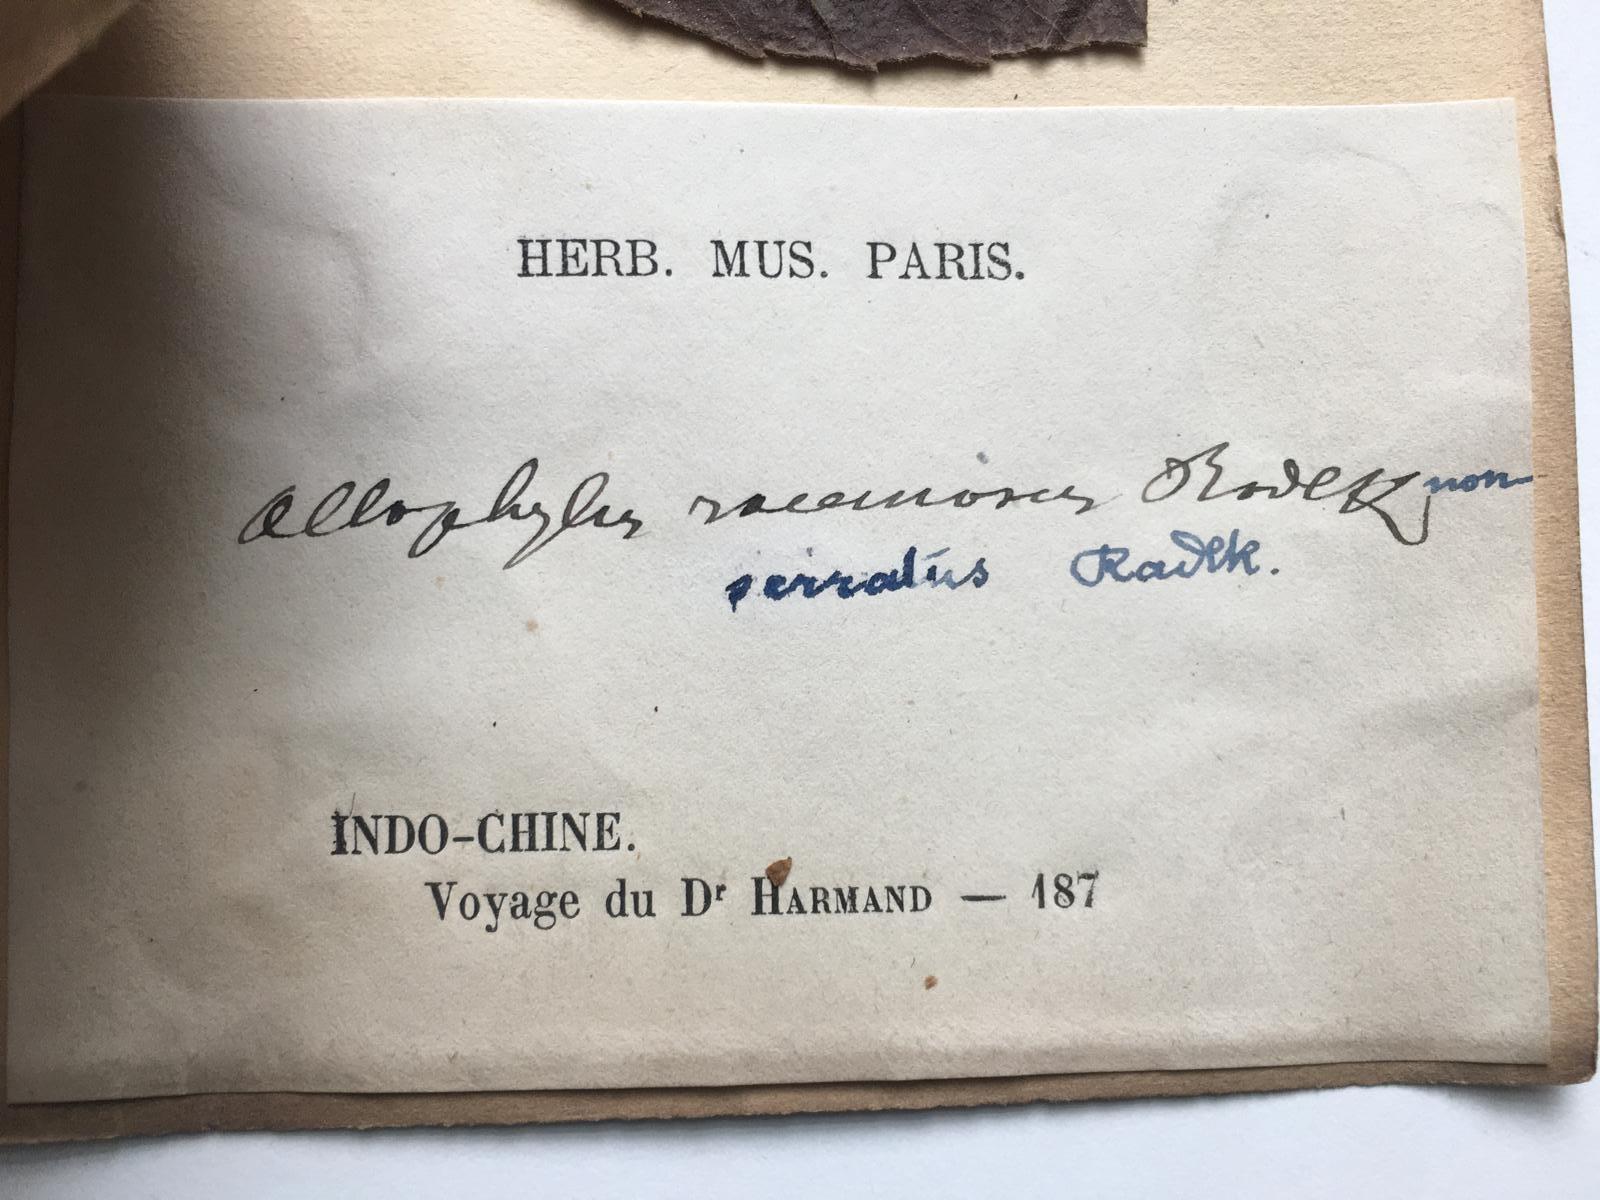 HERB. MUS. PARIS.
Allophylus racemosus Radlk non
serratus Radlk.
INDO-CHINE.
Voyage du Dr HARMAND — 187